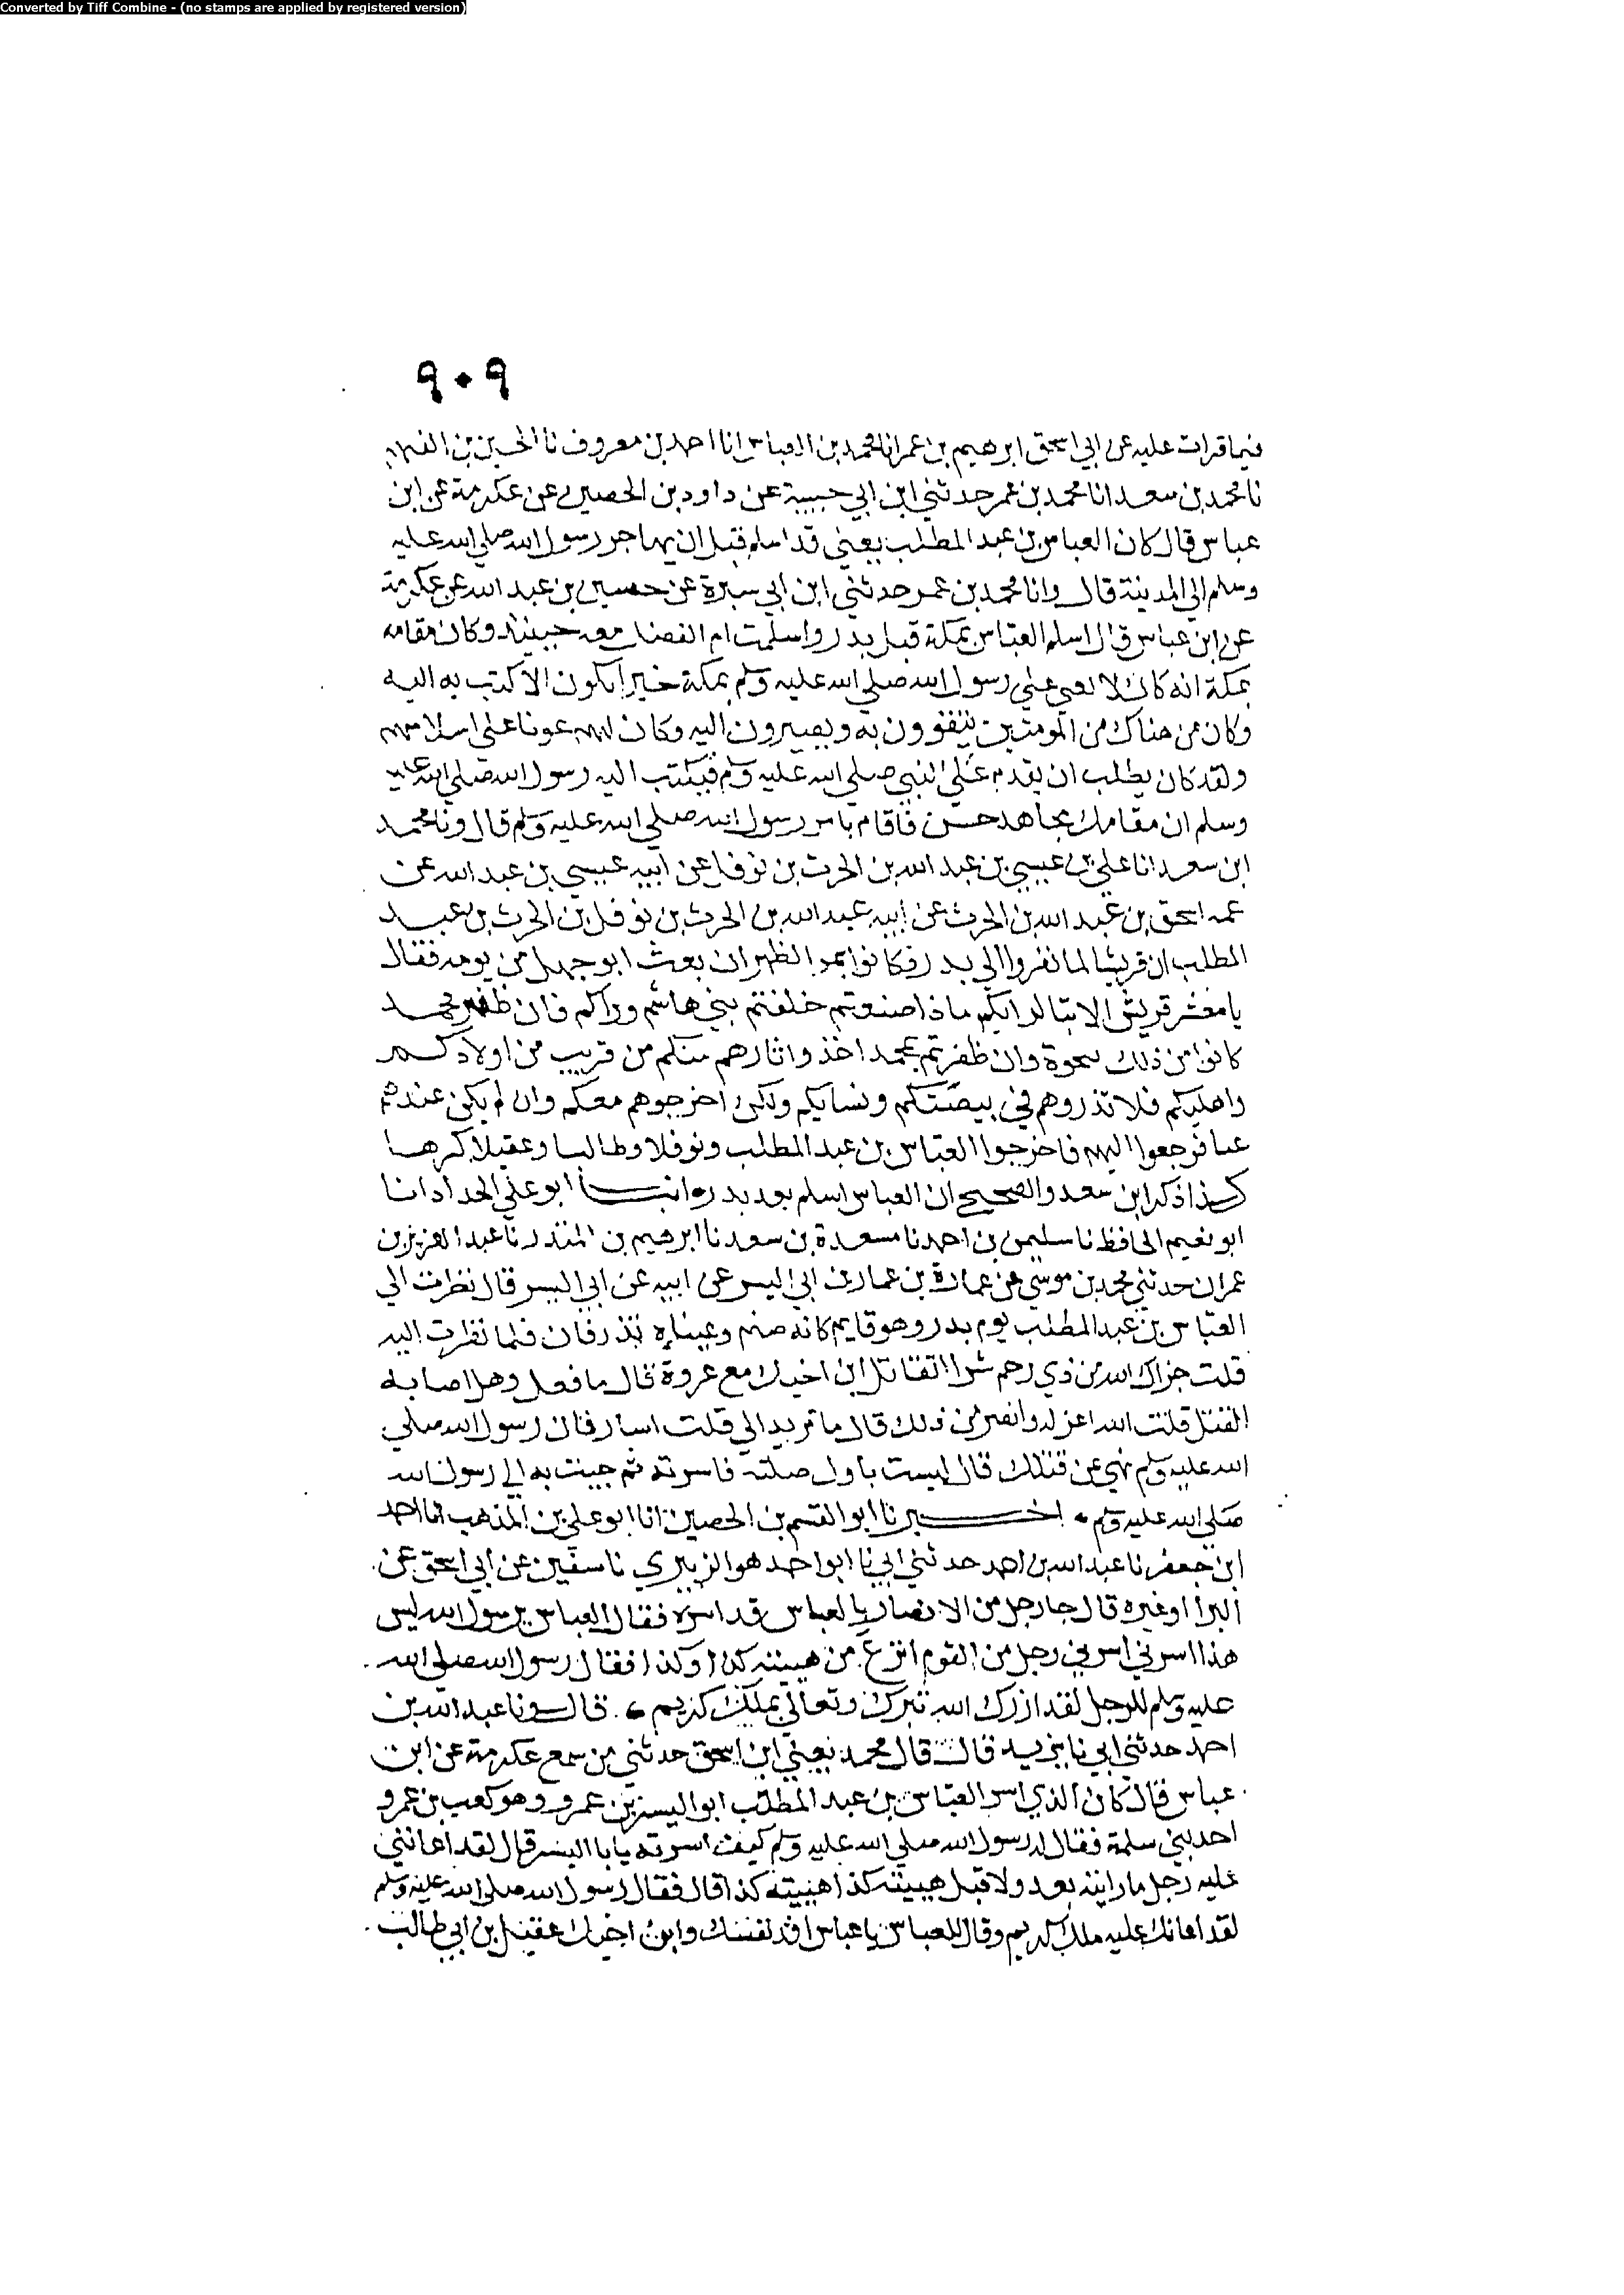 Converted by Tiff Combine - (no stamps are applied by registered version)
٩٠٩
فيما قرات عليه عن ابي اسحق ابرهيم بن عمر انا محمد بن العباس انا احمد بن معروف نا الحسين بن الفهم
نا محمد بن سعد انا محمد بن عمر حدثني ابن ابي حبيبة عن داود بن الحصين عن عكرمة عن ابن
عباس قال كان العباس بن عبد المطلب يعني قد اسلم قبل ان يهاجر رسول الله صلي الله عليه
وسلم الي المدينة قال وانا محمد بن عمر حدثني ابن ابي سبرة عن حسين بن عبد الله عن عكرمة
عن ابن عباس قال اسلم العباس بمكة قبل بدر واسلمت ام الفضل معه حينيذ وكان مقامه
بمكة انه كان لا يغبي علي رسول الله صلي الله عليه وسلم بمكة خبرا يكون الا كتب به اليه
وكان من هناك من المومنين يتقوون به ويصيرون اليه وكان لهم عونا علي اسلامهم
ولقد كان يطلب ان يقدم علي النبي صلي الله عليه وسلم فيكتب اليه رسول الله صلي الله عليه
وسلم ان مقامك مجاهد حسن فاقام بامر رسول الله صلي الله عليه وسلم قال ونا محمد
ابن سعد انا علي بن عيسي بن عبد الله بن الحرث بن نوفل عن ابيه عيسي بن عبد الله عن
عمه اسحق بن عبد الله بن الحرث عن ابيه عبد الله بن الحرث بن نوفل بن الحرث بن عبد
المطلب ان قريشا لما نفروا الي بدر فكانوا بمر الظهران بعث ابو جهل من يومه فقال
يا معشر قريش الا تبا لرايكم ماذا صنعتم خلفتم بني هاشم وراكم فان ظفر محمد
كانوا من ذلك بنحوة وان ظفرتم بمحمد اخذوا ثارهم منكم من قريب من اولادكم
واهليكم فلا تذروهم في بيضتكم ونسايكم ولكن اخرجوهم معكم وان لم يكن عندهم
عنا فرجعوا اليهم فاخرجوا العباس بن عبد المطلب ونوفلا وطالبا وعقيلا كرها
كذا ذكر ابن سعد والصحيح ان العباس اسلم بعد بدر انبانا ابو علي الحداد انا
ابو نعيم الحافظ نا سليمن بن احمد نا مسعدة بن سعد نا ابرهيم بن المنذر نا عبد العزيز بن
عمران حدثني محمد بن موسي عن عمارة بن عمار بن ابي اليسر عن ابيه عن ابي اليسر قال نظرت الي
العباس بن عبد المطلب يوم بدر وهو قايم كانه صنم وعيناه تذرفان فلما نظرت اليه
قلت جزاك الله من ذي رحم شرا اتقاتل ابن اخيك مع عدوه قال ما فعل وهل اصابه
القتل قلت الله اعز له وانصر من ذلك قال ما تريد الي قلت اسار فان رسول الله صلي
الله عليه وسلم نهي عن قتلك قال ليست باول صلته فاسرته ثم جيت به الي رسول الله
صلي الله عليه وسلم اخبرنا ابو القسم بن الحصين انا ابو علي بن المذهب انا احمد
ابن جعفر نا عبد الله بن احمد حدثني ابي نا ابو احمد هو الزبيري نا سفين عن ابي اسحق عن
البرا او غيره قال جا رجل من الانصار بالعباس قد اسره فقال العباس يرسول الله ليس
هذا اسرني اسرني رجل من القوم انزع من هييته كذا وكذا فقال رسول الله صلي الله
عليه وسلم للرجل لقد ازرك الله تبرك وتعالي بملك كريم قال ونا عبد الله بن
احمد حدثني ابي نا يزيد قال قال محمد يعني ابن اسحق حدثني من سمع عكرمة عن ابن
عباس قال كان الذي اسر العباس بن عبد المطلب ابو اليسر بن عمرو وهو كعب بن عمرو
احد بني سلمة فقال له رسول الله صلي الله عليه وسلم كيف اسرته يابا اليسر قال لقد اعانني
عليه رجل ما رايته بعد ولا قبل هييته كذا هييته كذا قال فقال رسول الله صلي الله عليه وسلم
لقد اعانك عليه ملك كريم وقال للعباس يا عباس افد نفسك وابن اخيك عقيل بن ابي طالب